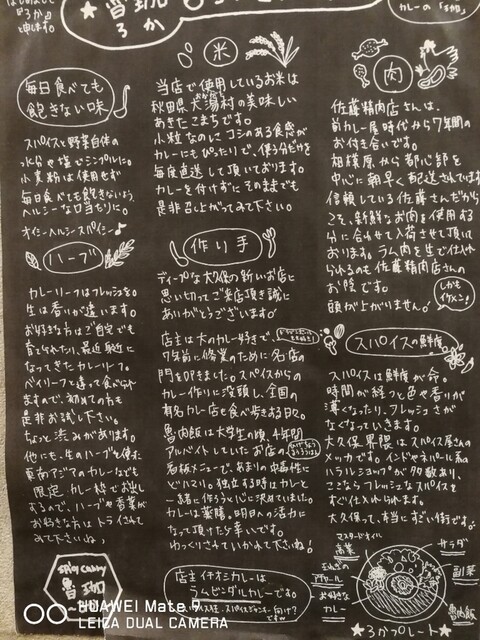 魯珈
ろか
申します。
カレーの「魯珈」
毎日食べても
飽きない味
スパイスと野菜自体の
水分や塩でシンプルに。
小麦粉は使用せず
毎日食べても飽きないよう、
ヘルシーな口当たりに。
オイシーヘルシースパイシー♪
ハーブ
カレーリーフはフレッシュを。
生は香りが違います。
お好きな方はご自宅でも
育てられたり、最近身近に
なってきたカレーリーフ。
ベイリーフと違って食べられ
ますので、初めての方も
是非お試し下さい。
ちょっと渋みがあります。
他にも、生のハーブを使った
東南アジアのカレーなども
限定カレー枠でお出し
するので、ハーブや香菜が
お好きな方はトライされて
みて下さいね!
SPICY CURRY
魯珈
米
当店で使用しているお米は
秋田県大潟村の美味しい
あきたこまちです。
小粒なのにコシのある食感が
カレーにもぴったりで、使う分だけを
毎度直送して頂いております。
カレーを付けずにそのままでも
是非召し上がってみて下さい。
作り手
ディープな大久保の新しいお店に
思い切ってご来店頂き誠に
ありがとうございます!
店主は大のカレー好きで、
7年前に修業のために名店の
門を叩きました。スパイスからの
カレー作りに没頭し、全国の
有名カレー店を食べ歩きする日々。
魯肉飯は大学生の頃、4年間
アルバイトしていたお店の
看板メニューで、あまりの中毒性に
どハマり。独立する時はカレーと
一緒に作ろうと心に決めていました。
カレーは薬膳。明日への活力に
なって頂けたら幸いです。
ゆっくりさていかれて下さいね!
店主イチオシカレーは
ラムビンダルカレーです。
肉
佐藤精肉店さんは、
前カレー屋時代から7年間の
お付き合いです。
相模原から都心部を
中心に朝早く配送されています。
信頼している佐藤さんだから
こそ、新鮮なお肉を使用する
分に合わせて入荷させて頂いて
おります。ラム肉を生で仕入れ
られるのも佐藤精肉店さんの
お陰です。
頭が上がりません!
しかも
イケメン!
スパイスの鮮度
スパイスは鮮度が命。
時間が経つと色や香りが
薄くなったり、フレッシュさが
なくなっていきます。
大久保界隈はスパイス屋さんの
メッカです。インドやネパール系の
ハラルショップが多数あり、
ここならフレッシュなスパイスを
すぐ仕入れられます。
大久保って、本当にすごい街です。
マスタードオイル
高菜
サラダ
玉ねぎの
アチャール
副菜
お好きな
カレー
魯肉飯
★ろかプレート★
HUAWEI Mate 9
LEICA DUAL CAMERA